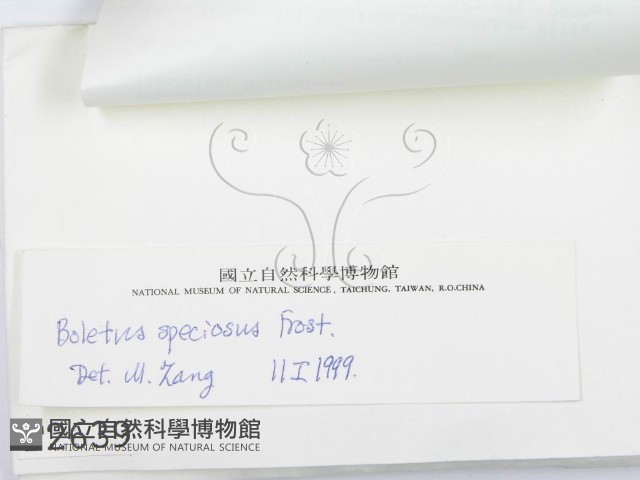 國立自然科學博物館
NATIONAL MUSEUM OF NATURAL SCIENCE, TAICHUNG, TAIWAN, R.O.CHINA
Boletus speciosus Frost.
Det. M. Zang 11 I 1999.
國立自然科學博物館
NATIONAL MUSEUM OF NATURAL SCIENCE